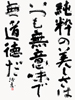 純粋の美しさは
いつも無意味で
無道徳だ